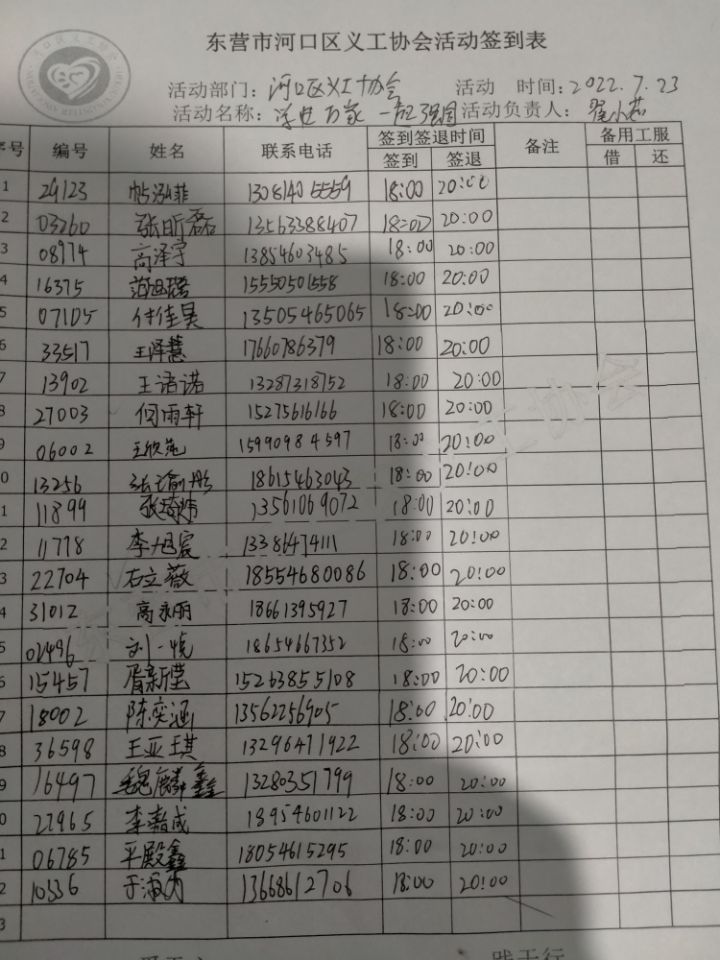 东营市河口区义工协会活动签到表
活动部门：河口区义工协会 活动 时间：2022.7.23
活动名称： 万家 一起强国 活动负责人：
序号 编号 姓名 联系电话 签到签退时间 备注 备用工服
签到 签退 借 还
1 29123 1308140 5559 18:00 20:00
2 03260 张昕磊 13563388407 18:00 20:00
3 08974 高泽宇 13854603485 18:00 20:00
4 16375 15550501558 18:00 20:00
5 07105 佳昊 13505465065 18:00 20:00
6 33517 王泽慧 17660786379 18:00 20:00
7 13902 王诸诺 13287318752 18:00 20:00
8 27003 何雨轩 15275616166 18:00 20:00
9 06002 王欣苑 15990984597 18:00 20:00
0 13256 张渝彤 18615463043 18:00 20:00
1 11899 13561069072 18:00 20:00
2 11778 李旭宸 13386474111 18:00 20:00
3 22704 石立薇 18554680086 18:00 20:00
4 31012 高永丽 18661395927 18:00 20:00
5 02496 刘一 18654667352 18:00 20:00
6 15457 胥新莹 15263855108 18:00 20:00
7 18002 陈奕涵 13562256905 18:00 20:00
8 36598 王亚琪 13296471922 18:00 20:00
9 16497 魏麟鑫 13280351799 18:00 20:00
0 27965 李嘉成 18954601122 18:00 20:00
1 06785 平殿鑫 18054615295 18:00 20:00
2 10336 于淑 13668612706 18:00 20:00
3
践于行